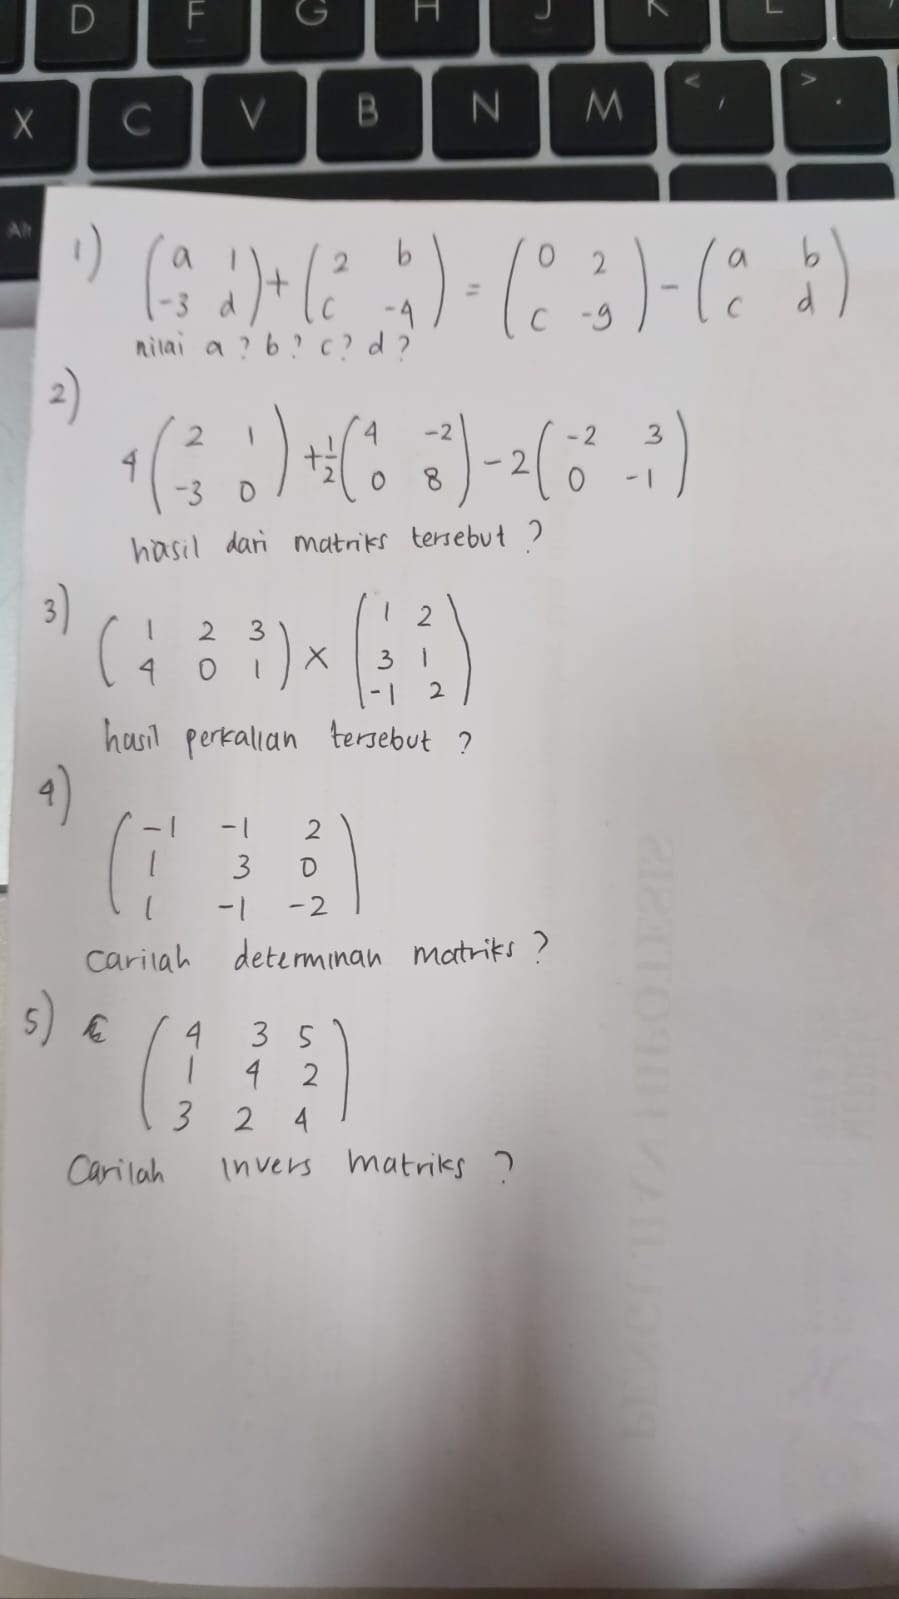 D F G H J K L
X C V B N M < , > .
Alt
1) (a 1 -3 d) + (2 b c -4) = (0 2 c -9) - (a b c d)
nilai a? b? c? d?
2)
4 (2 1 -3 0) + 1/2 (4 -2 0 8) - 2 (-2 3 0 -1)
hasil dari matriks tersebut?
3) (1 2 3 4 0 1) × (1 2 3 1 -1 2)
hasil perkalian tersebut?
4)
(-1 -1 2 1 3 0 1 -1 -2)
carilah determinan matriks?
5) (4 3 5 1 4 2 3 2 4)
Carilah invers matriks?
PENGUJIAN HIPOTESIS